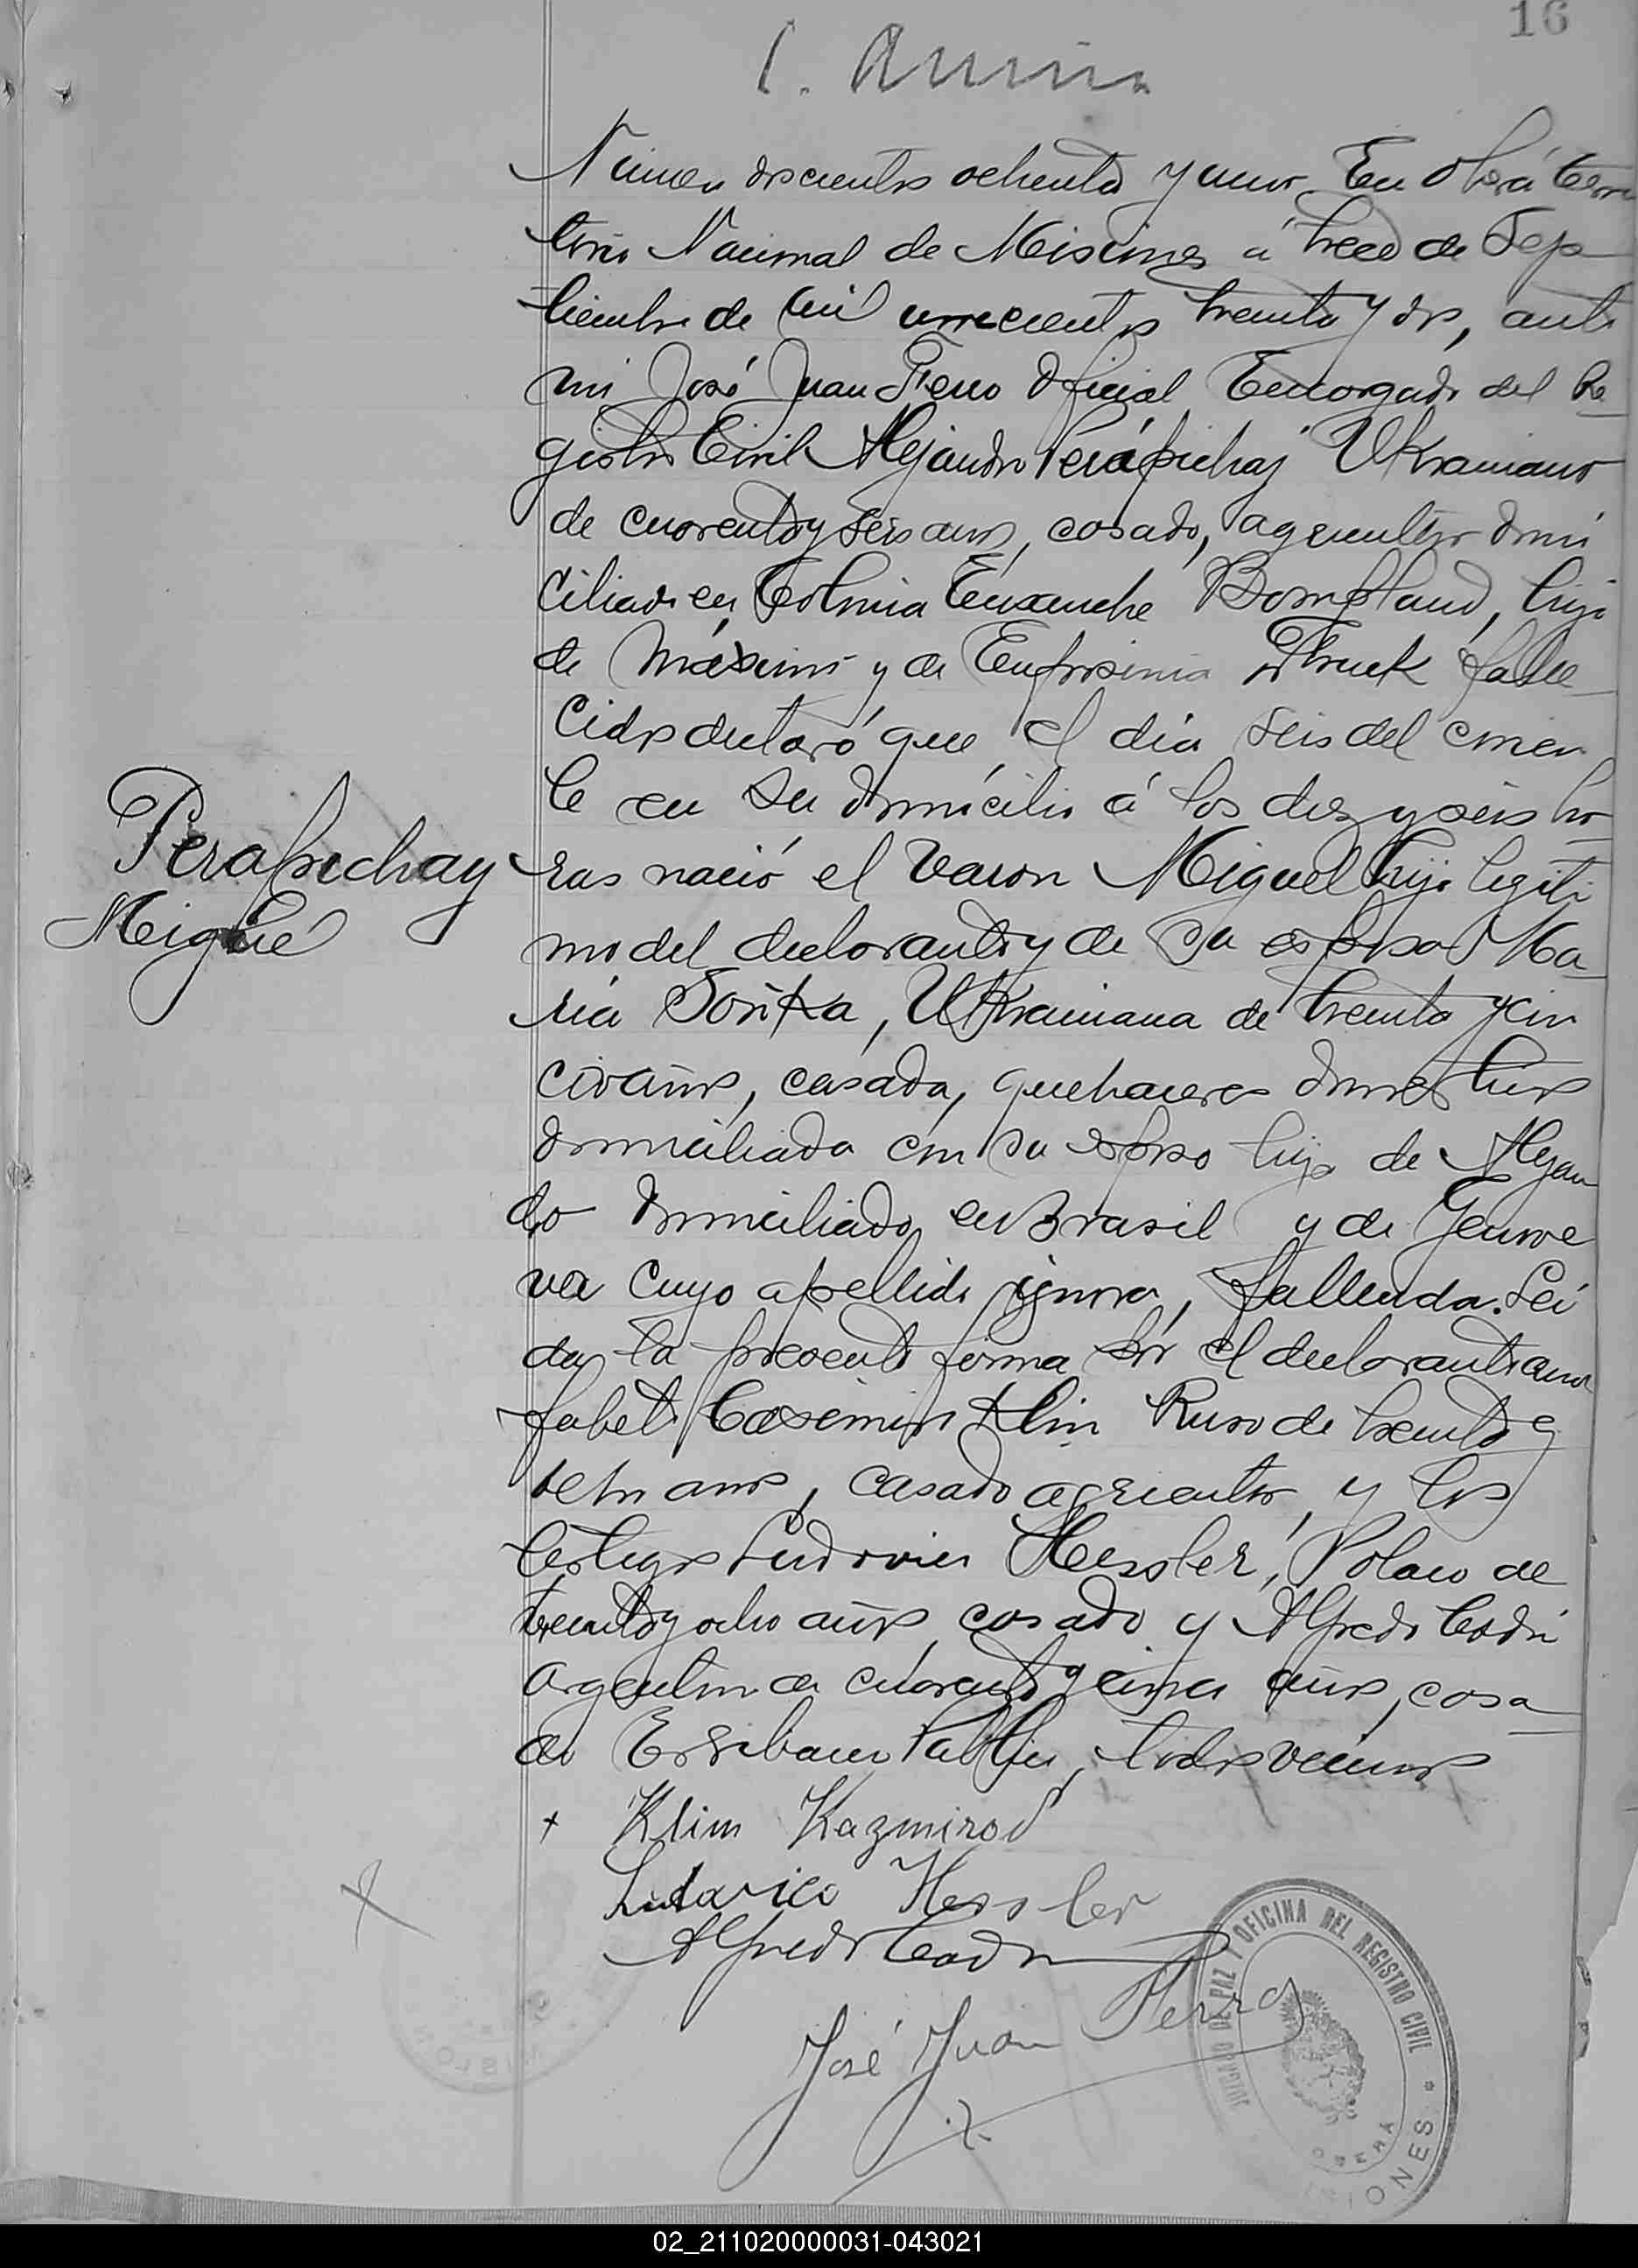 16
Número doscientos ochenta y uno. En Oberá terri
torio Nacional de Misiones á trece de Sep
tiembre de mil novecientos treinta y dos, ante
mi José Juan Ferro Oficial Encargado del Re
gistro Civil Alejandro Perapichaj Ukraniano
de cuarenta y seis años, casado, agricultor domi
ciliado en Colonia Ensanche Bompland, hijo
de Máximo y de Eufrosinia falle
cidos declaró que el día seis del corrien
te en su domicilio á las diez y seis ho
Perapichay
Miguel
ras nació el varon Miguel hijo legíti
mo del declarante y de su esposa Ma
ria Ukraniana de treinta y cin
co años, casada, quehaceres domésticos
domiciliada con su esposo hija de Alejan
dro domiciliado en Brasil y de Genove
va cuyo apellido ignora, fallecida. Leí
da la presente firma por el declarante anal
fabeto Casimiro Klin Ruso de treinta y
ocho años, casado agricultor, y los
testigos Ludovico Hessler, Polaco de
treinta y ocho años casado y Alfredo
Argentino de cuarenta y cinco años, casa
do Escribano Público, todos vecinos
+ Klim Kazmirod
Ludovico Hessler
Alfredo
José Juan Ferro
JUZGADO DE PAZ Y OFICINA DEL REGISTRO CIVIL * OBERÁ MISIONES
02_211020000031-043021